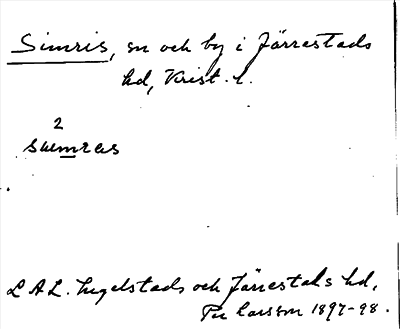 Simris, sn och by i Järrestads
hd, Krist. l.
2
summras
L A L. Ingelstads och Järrestads hd,
Per Larsson 1897-98.